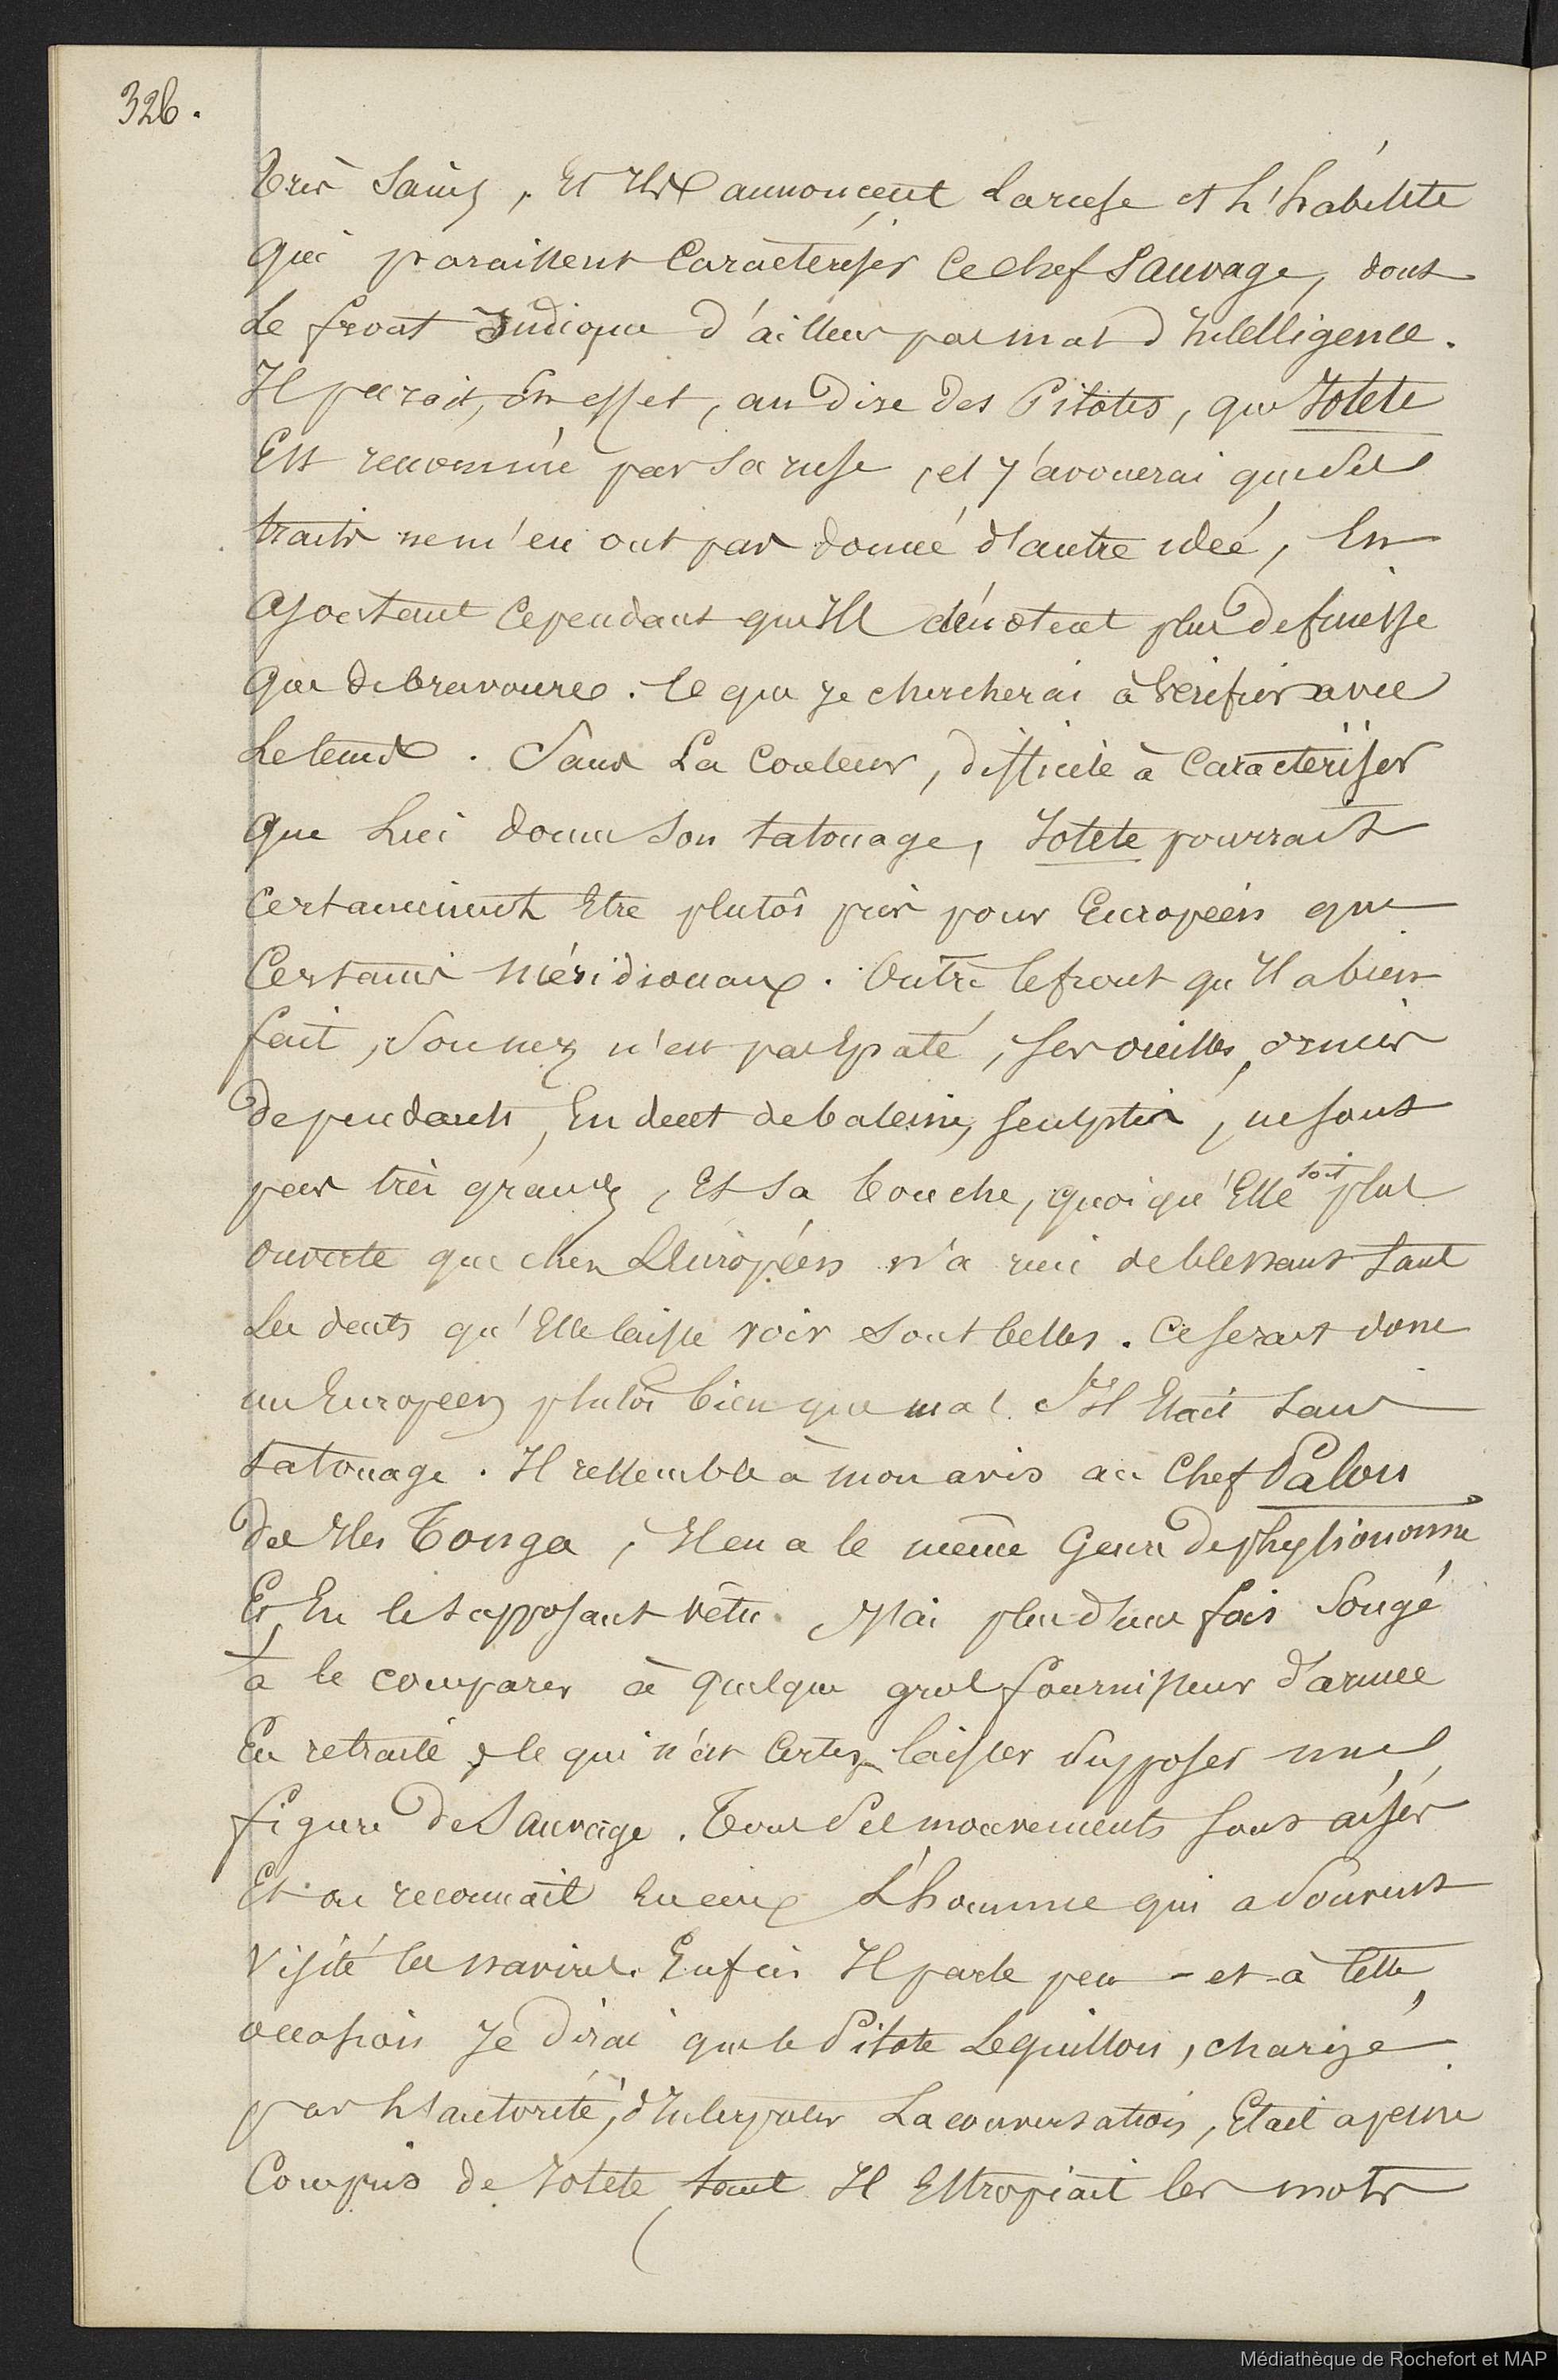 326.
très sains, Et Ils annoncent la ruse et l'habileté
qui paraissent Caractériser ce chef Sauvage, dont
le front Indique d'ailleurs pas mal d'Intelligence.
Il parait, En effet, au dire des Pilotes, que Iotété
Est renommée par sa ruse, et J'avouerai que Ses
traits ne m'en ont pas donné d'autre idée, En
ajoutant Cependant qu'Ils dénotent plus de finesse
que de bravoure. Ce que Je chercherai à Vérifier avec
le temps. Sans La Couleur, difficile à Caractériser
que Lui donne Son tatouage, Iotete pourrait
Certainement Etre plutôt pris pour Européen que
Certains Méridionaux. Outre le front qu'Il a bien
fait, Son nez n'est pas Epaté, Ses oreilles, ornées
de pendants, En dent de baleine, sculptés, ne sont
pas très grands, Et sa bouche, quoiqu'Elle soit plus
ouverte que chez L'Européen n'a rien de blessant tant
les dents qu'Elle laisse voir sont belles. Ce serait donc
un Européen plutôt bien que mal S'Il Etait sans
tatouage. Il ressemble à mon avis au Chef Palou
des Iles Tonga, Il en a le même Genre de physionomie
Et En le supposant vêtu. J'ai plus d'une fois Songé
à le comparer à quelque gros fournisseur d'armée
En retraite, Ce qui n'est Certes laisser Supposer une
figure de Sauvage. Tous Ses mouvements sont aisés
Et on reconnait En eux L'homme qui a Souvent
Visité les navires. Enfin Il parle peu - et à Cette
occasion Je dirai que le Pilote Leguillou, chargé
par L'autorité, d'Interpréter La conversation, Etait a peine
Compris de Iotete tant Il Estropiait les mots
Médiathèque de Rochefort et MAP